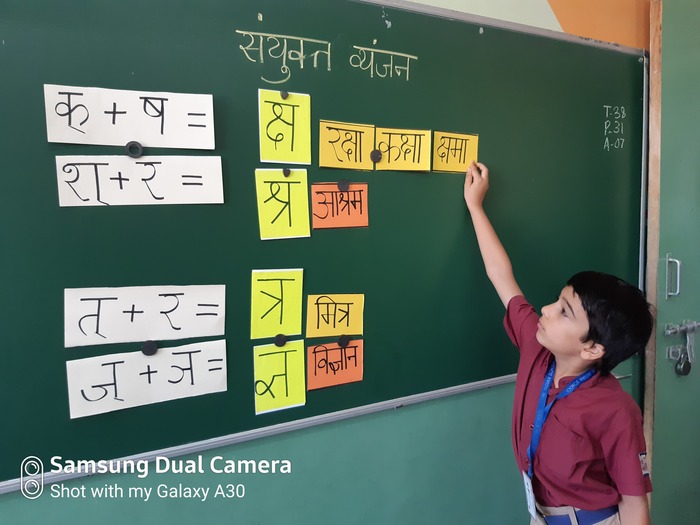 संयुक्त व्यंजन
T-38
P-31
A-07
क् + ष = क्ष रक्षा कक्षा क्षमा
श् + र = श्र आश्रम
त् + र = त्र मित्र
ज् + ञ = ज्ञ विज्ञान
Samsung Dual Camera
Shot with my Galaxy A30